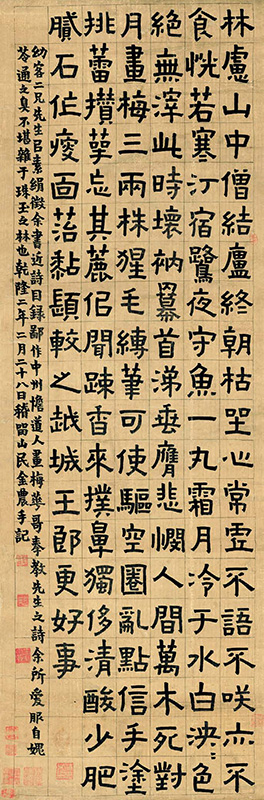 林慮山中僧結廬終朝枯坐心常虛不語不咲亦不
食恍若寒汀宿鷺夜守魚一丸霜月冷于水白泱=色
絕無滓此時壞衲冪首涕垂膺悲憫人間萬木死對
月畫梅三兩株猩毛縛筆可使驅空圈亂點信手塗
挑蕾攢萼忘其麓但聞踈香來撲鼻獨侈清酸少肥
膩石瘦面黏較之越城王郎更好事
幼客二兄先生㠯素絹徵余書近詩目録鄙作中州擔道人畫梅華哥奉教先生之詩余所愛服自媿
苓通之臭不堪雜于珠玉之林也乾隆二年二月二十八日稽留山民金農手記